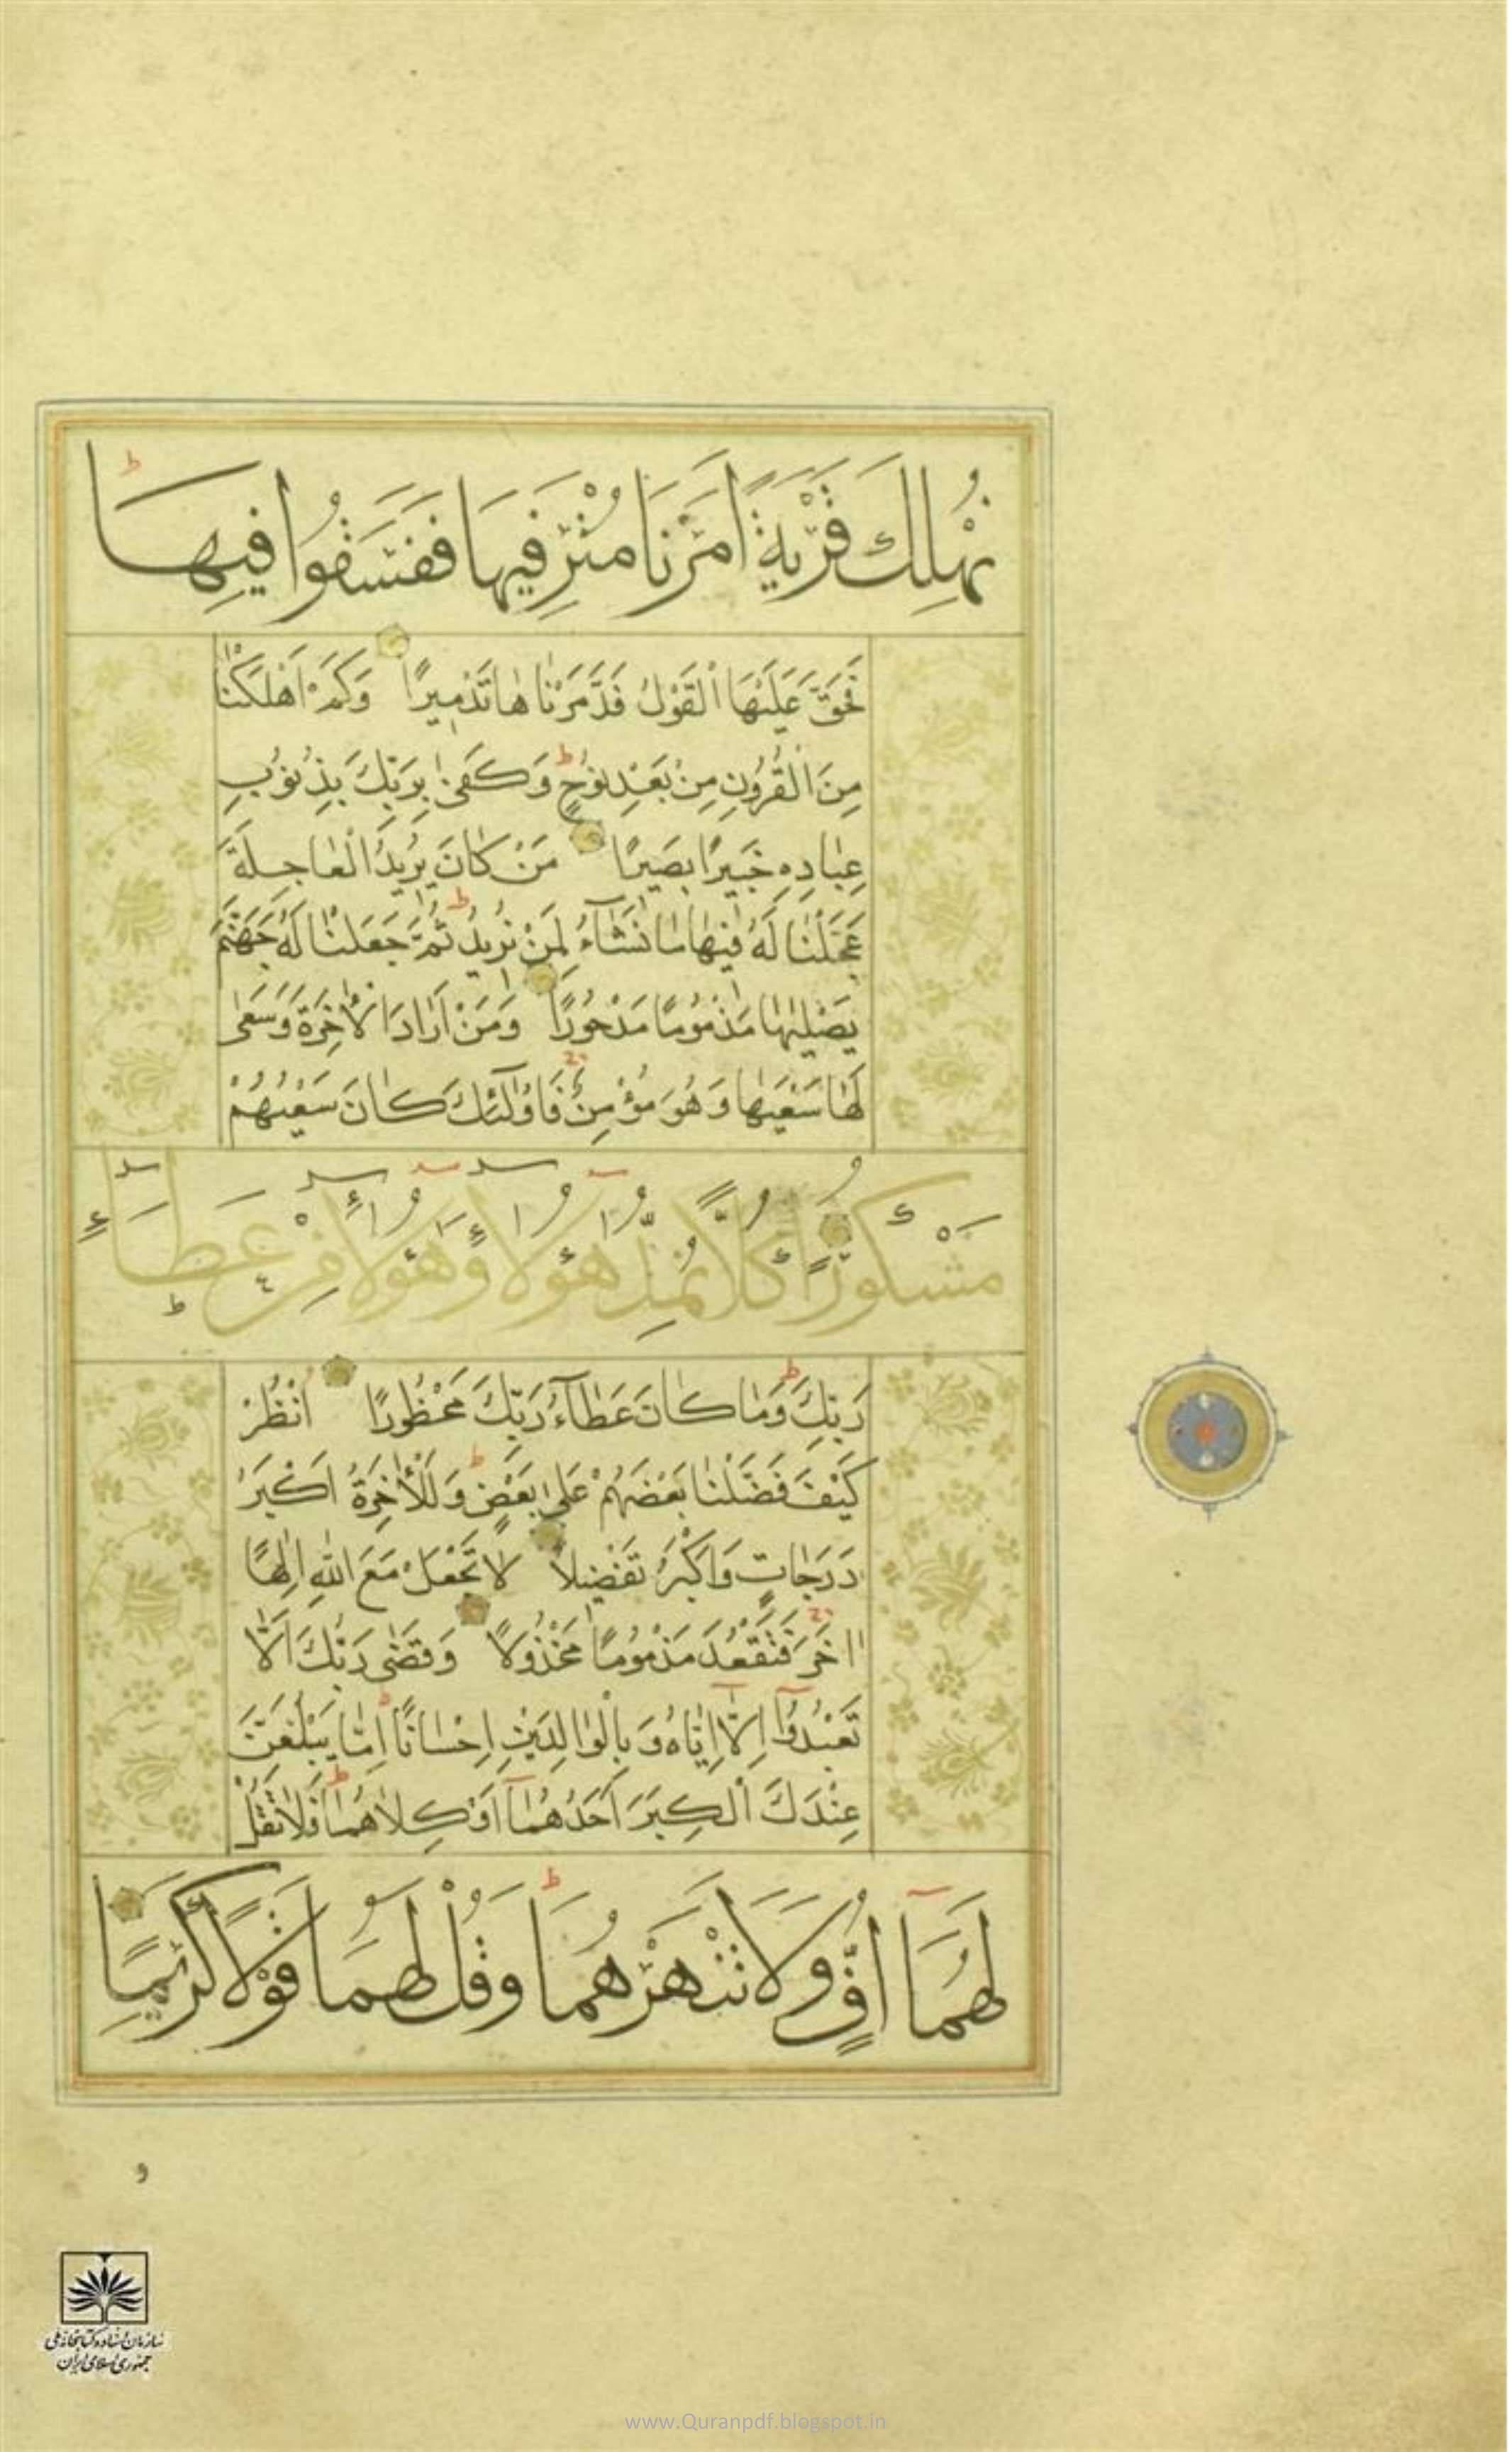 نُهْلِكَ قَرْيَةً اَمَرْنَا مُتْرَفِيهَا فَفَسَقُوا فِيهَا ط
فَحَقَّ عَلَيْهَا الْقَوْلُ فَدَمَّرْنٰاهٰا تَدْمِيرًا وَكَمْ اَهْلَكْنٰا
مِنَ الْقُرُونِ مِنْ بَعْدِ نُوحٍ ط وَكَفىٰ بِرَبِّكَ بِذُنُوبِ
عِبٰادِهِ خَبِيرًا بَصِيرًا مَنْ كٰانَ يُرِيدُ الْعٰاجِلَةَ
عَجَّلْنٰا لَهُ فِيهٰا مٰا نَشٰآءُ لِمَنْ نُرِيدُ ط ثُمَّ جَعَلْنٰا لَهُ جَهَنَّمَ
يَصْلٰيهٰا مَذْمُومًا مَدْحُورًا وَمَنْ اَرٰادَ الْاٰخِرَةَ وَسَعىٰ
لَهٰا سَعْيَهٰا وَهُوَ مُؤْمِنٌ فَاُولٰٓئِكَ كٰانَ سَعْيُهُمْ
مَشْكُورًا كُلًّا نُمِدُّ هٰٓؤُلَآءِ وَهٰٓؤُلَآءِ مِنْ عَطَآءِ
رَبِّكَ ط وَمٰا كٰانَ عَطٰآءُ رَبِّكَ مَحْظُورًا اُنْظُرْ
كَيْفَ فَضَّلْنٰا بَعْضَهُمْ عَلىٰ بَعْضٍ ط وَلَلْاٰخِرَةُ اَكْبَرُ
دَرَجٰاتٍ وَاَكْبَرُ تَفْضِيلًا لٰا تَجْعَلْ مَعَ اللّٰهِ اِلٰهًا
اٰخَرَ فَتَقْعُدَ مَذْمُومًا مَخْذُولًا وَقَضىٰ رَبُّكَ اَلّٰا
تَعْبُدُوٓا اِلّٰٓا اِيّٰاهُ وَبِالْوٰالِدَيْنِ اِحْسٰانًا ط اِمّٰا يَبْلُغَنَّ
عِنْدَكَ الْكِبَرَ اَحَدُهُمٰٓا اَوْ كِلٰاهُمٰا فَلٰا تَقُلْ
لَهُمَآ اُفٍّ وَلَا تَنْهَرْهُمَا ط وَقُلْ لَهُمَا قَوْلًا كَرِيمًا
و
سازمان اسناد و کتابخانه ملی
جمهوری اسلامی ایران
www.Quranpdf.blogspot.in